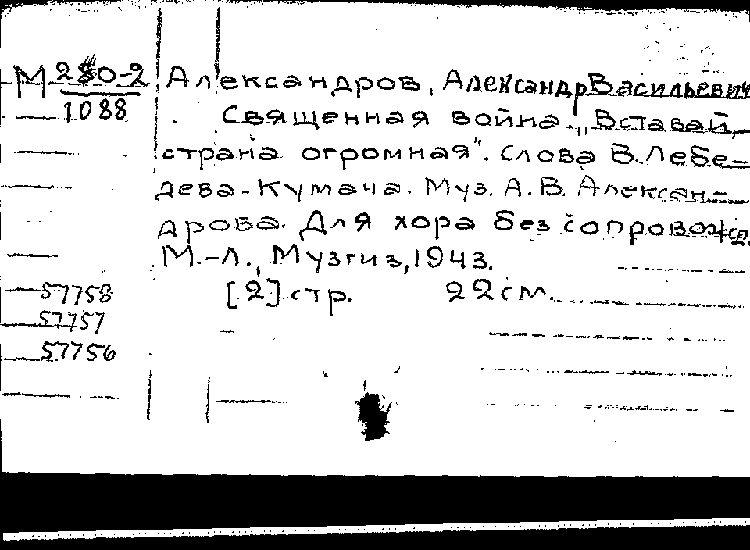 М 280-2 Александров, Александр Васильевич
1088 Священная война. „Вставай,
страна огромная". Слова В. Лебе-
дева-Кумача. Муз. А. В. Алексан-
дрова. Для хора без сопровожд.
М.-Л., Музгиз, 1943.
57758 [2] стр. 22 см.
57757
57756